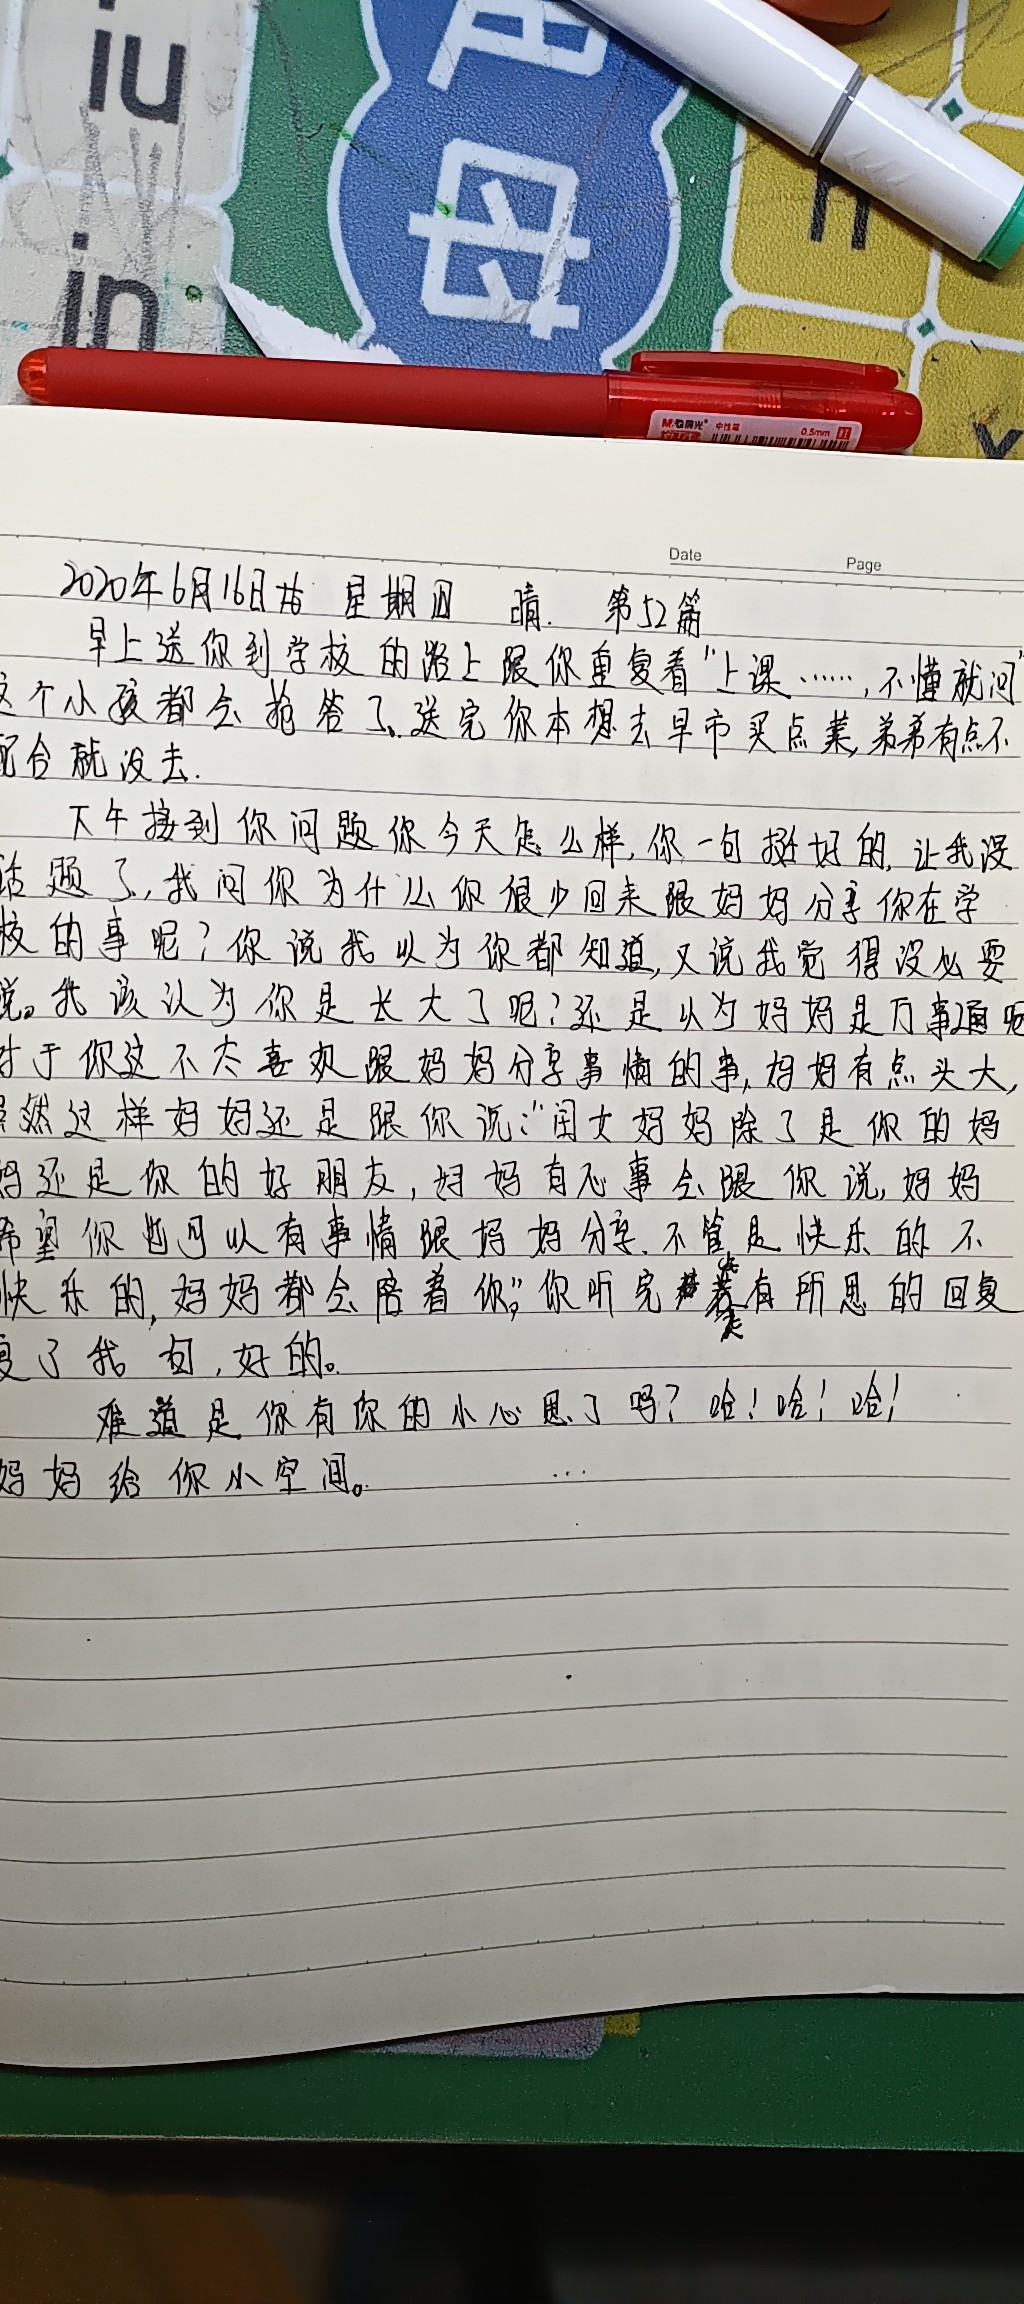 iu
母
in
n
M&G晨光 中性笔 0.5mm 红
Date Page
2020年6月16日 星期四 晴. 第52篇
早上送你到学校的路上跟你重复着"上课……,不懂就问"
这个小孩都会抢答了、送完你本想去早市买点菜,弟弟有点不
配合就没去.
下午接到你问题你今天怎么样,你一句挺好的,让我没
话题了,我问你为什么你很少回来跟妈妈分享你在学
校的事呢?你说我以为你都知道,又说我觉得没必要
说。我该认为你是长大了呢?还是以为妈妈是万事通呢
对于你这不太喜欢跟妈妈分享事情的事,妈妈有点头大,
虽然这样妈妈还是跟你说:"闺女妈妈除了是你的妈
妈还是你的好朋友,妈妈有心事会跟你说,妈妈
希望你也可以有事情跟妈妈分享.不管是快乐的不
快乐的,妈妈都会陪着你";你听完若有所思的回复
复了我句,好的。
难道是你有你的小心思了吗?哈!哈!哈!
妈妈给你小空间。 ...